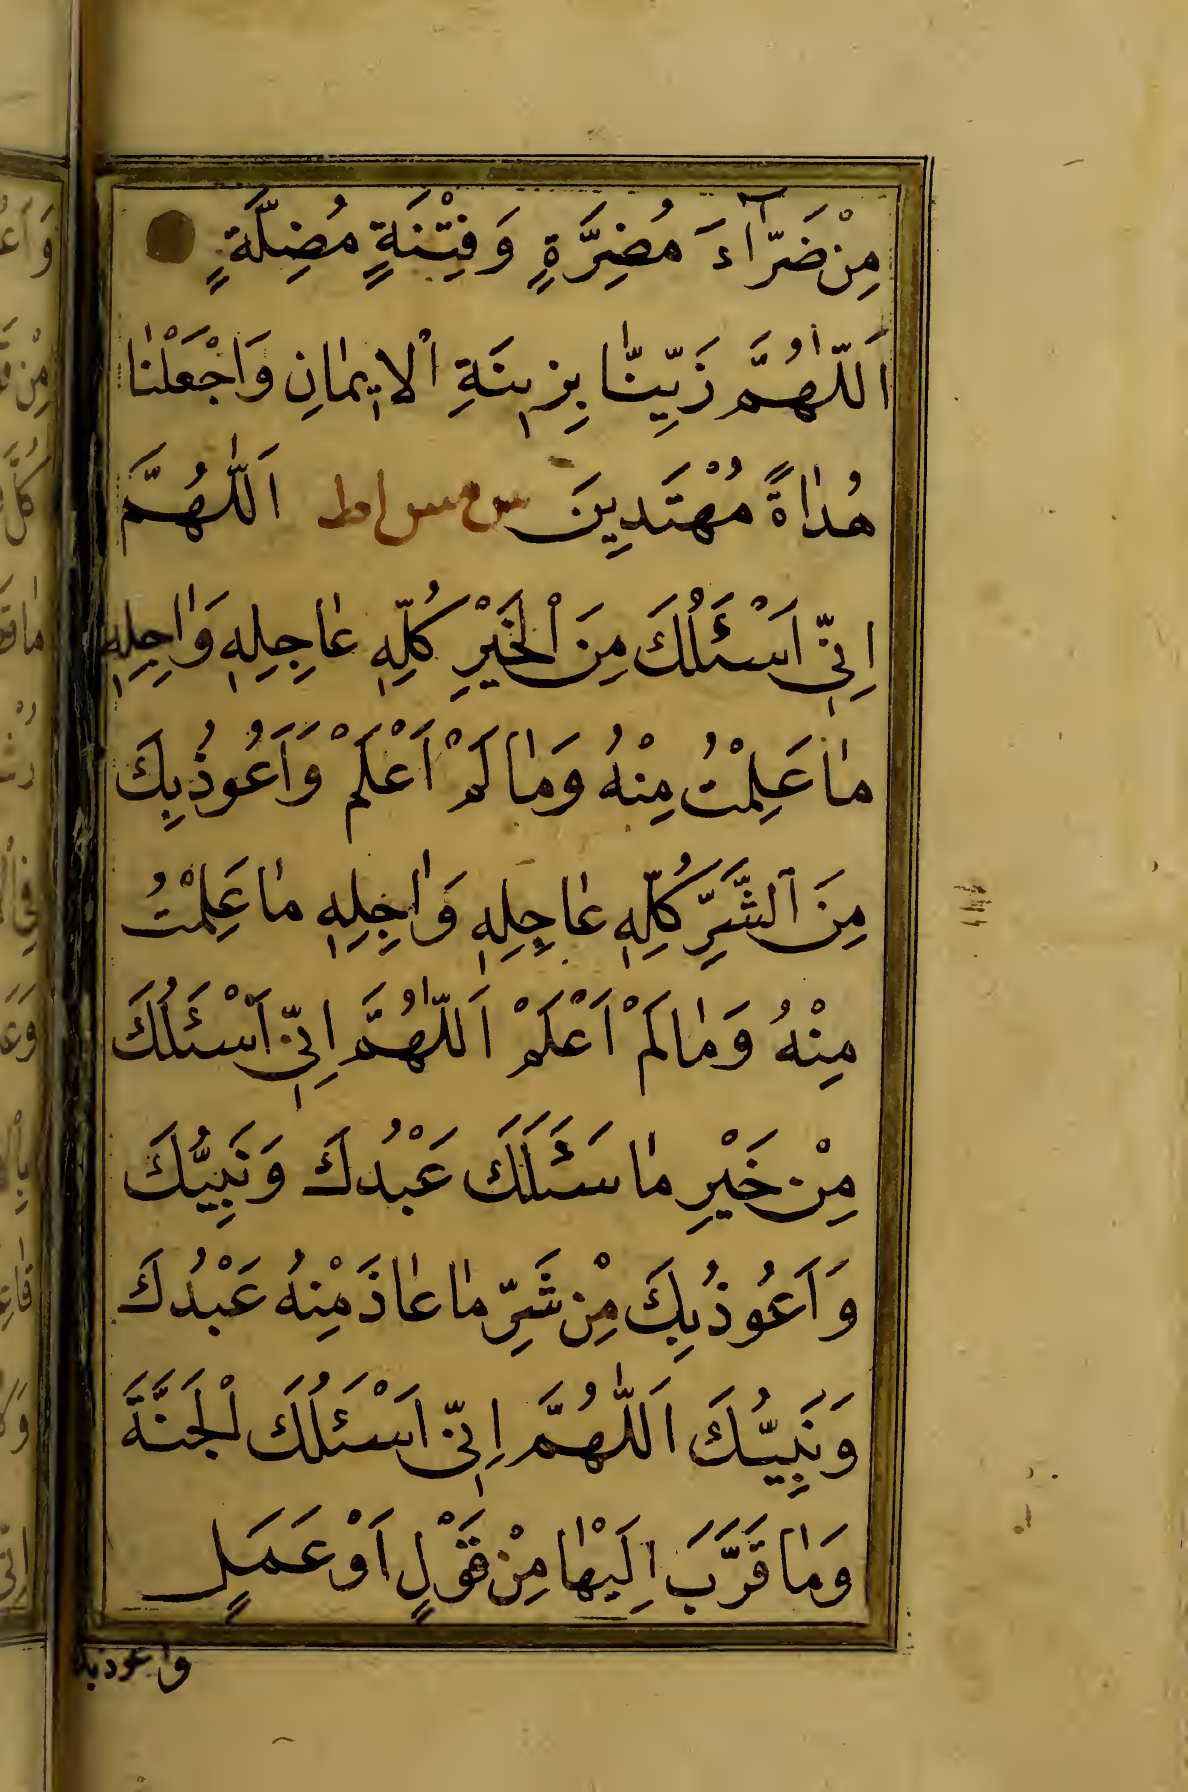 مِنْ ضَرَّآءَ مُضِرَّةٍ وَفِتْنَةٍ مُضِلَّةٍ
اَللّٰهُمَّ زَيِّنَّا بِزِينَةِ الْاِيمَانِ وَاجْعَلْنَا
هُدَاةً مُهْتَدِينَ س مس ا ط اَللّٰهُمَّ
اِنِّي اَسْئَلُكَ مِنَ الْخَيْرِ كُلِّهِ عَاجِلِهِ وَاٰجِلِهِ
مَا عَلِمْتُ مِنْهُ وَمَا لَمْ اَعْلَمْ وَاَعُوذُ بِكَ
مِنَ الشَّرِّ كُلِّهِ عَاجِلِهِ وَاٰجِلِهِ مَا عَلِمْتُ
مِنْهُ وَمَا لَمْ اَعْلَمْ اَللّٰهُمَّ اِنِّي اَسْئَلُكَ
مِنْ خَيْرِ مَا سَئَلَكَ عَبْدُكَ وَنَبِيُّكَ
وَاَعُوذُ بِكَ مِنْ شَرِّ مَا عَاذَ مِنْهُ عَبْدُكَ
وَنَبِيُّكَ اَللّٰهُمَّ اِنِّي اَسْئَلُكَ الْجَنَّةَ
وَمَا قَرَّبَ اِلَيْهَا مِنْ قَوْلٍ اَوْ عَمَلٍ
واعوذ بك